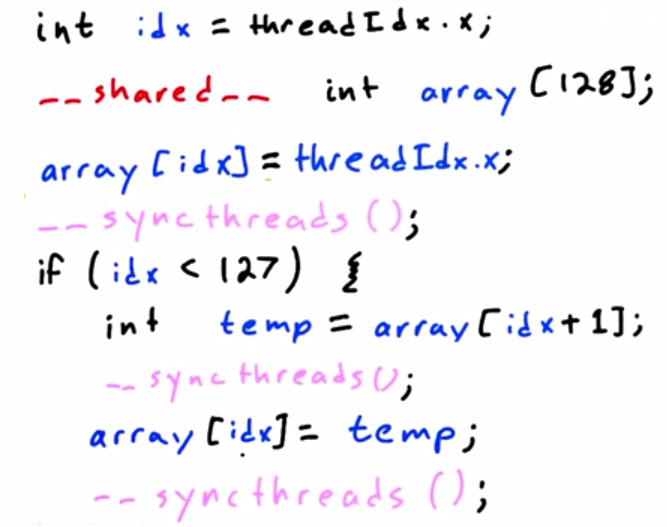 int idx = threadIdx.x;
__shared__ int array[128];
array[idx] = threadIdx.x;
__syncthreads();
if (idx < 127) {
int temp = array[idx+1];
__syncthreads();
array[idx] = temp;
__syncthreads();